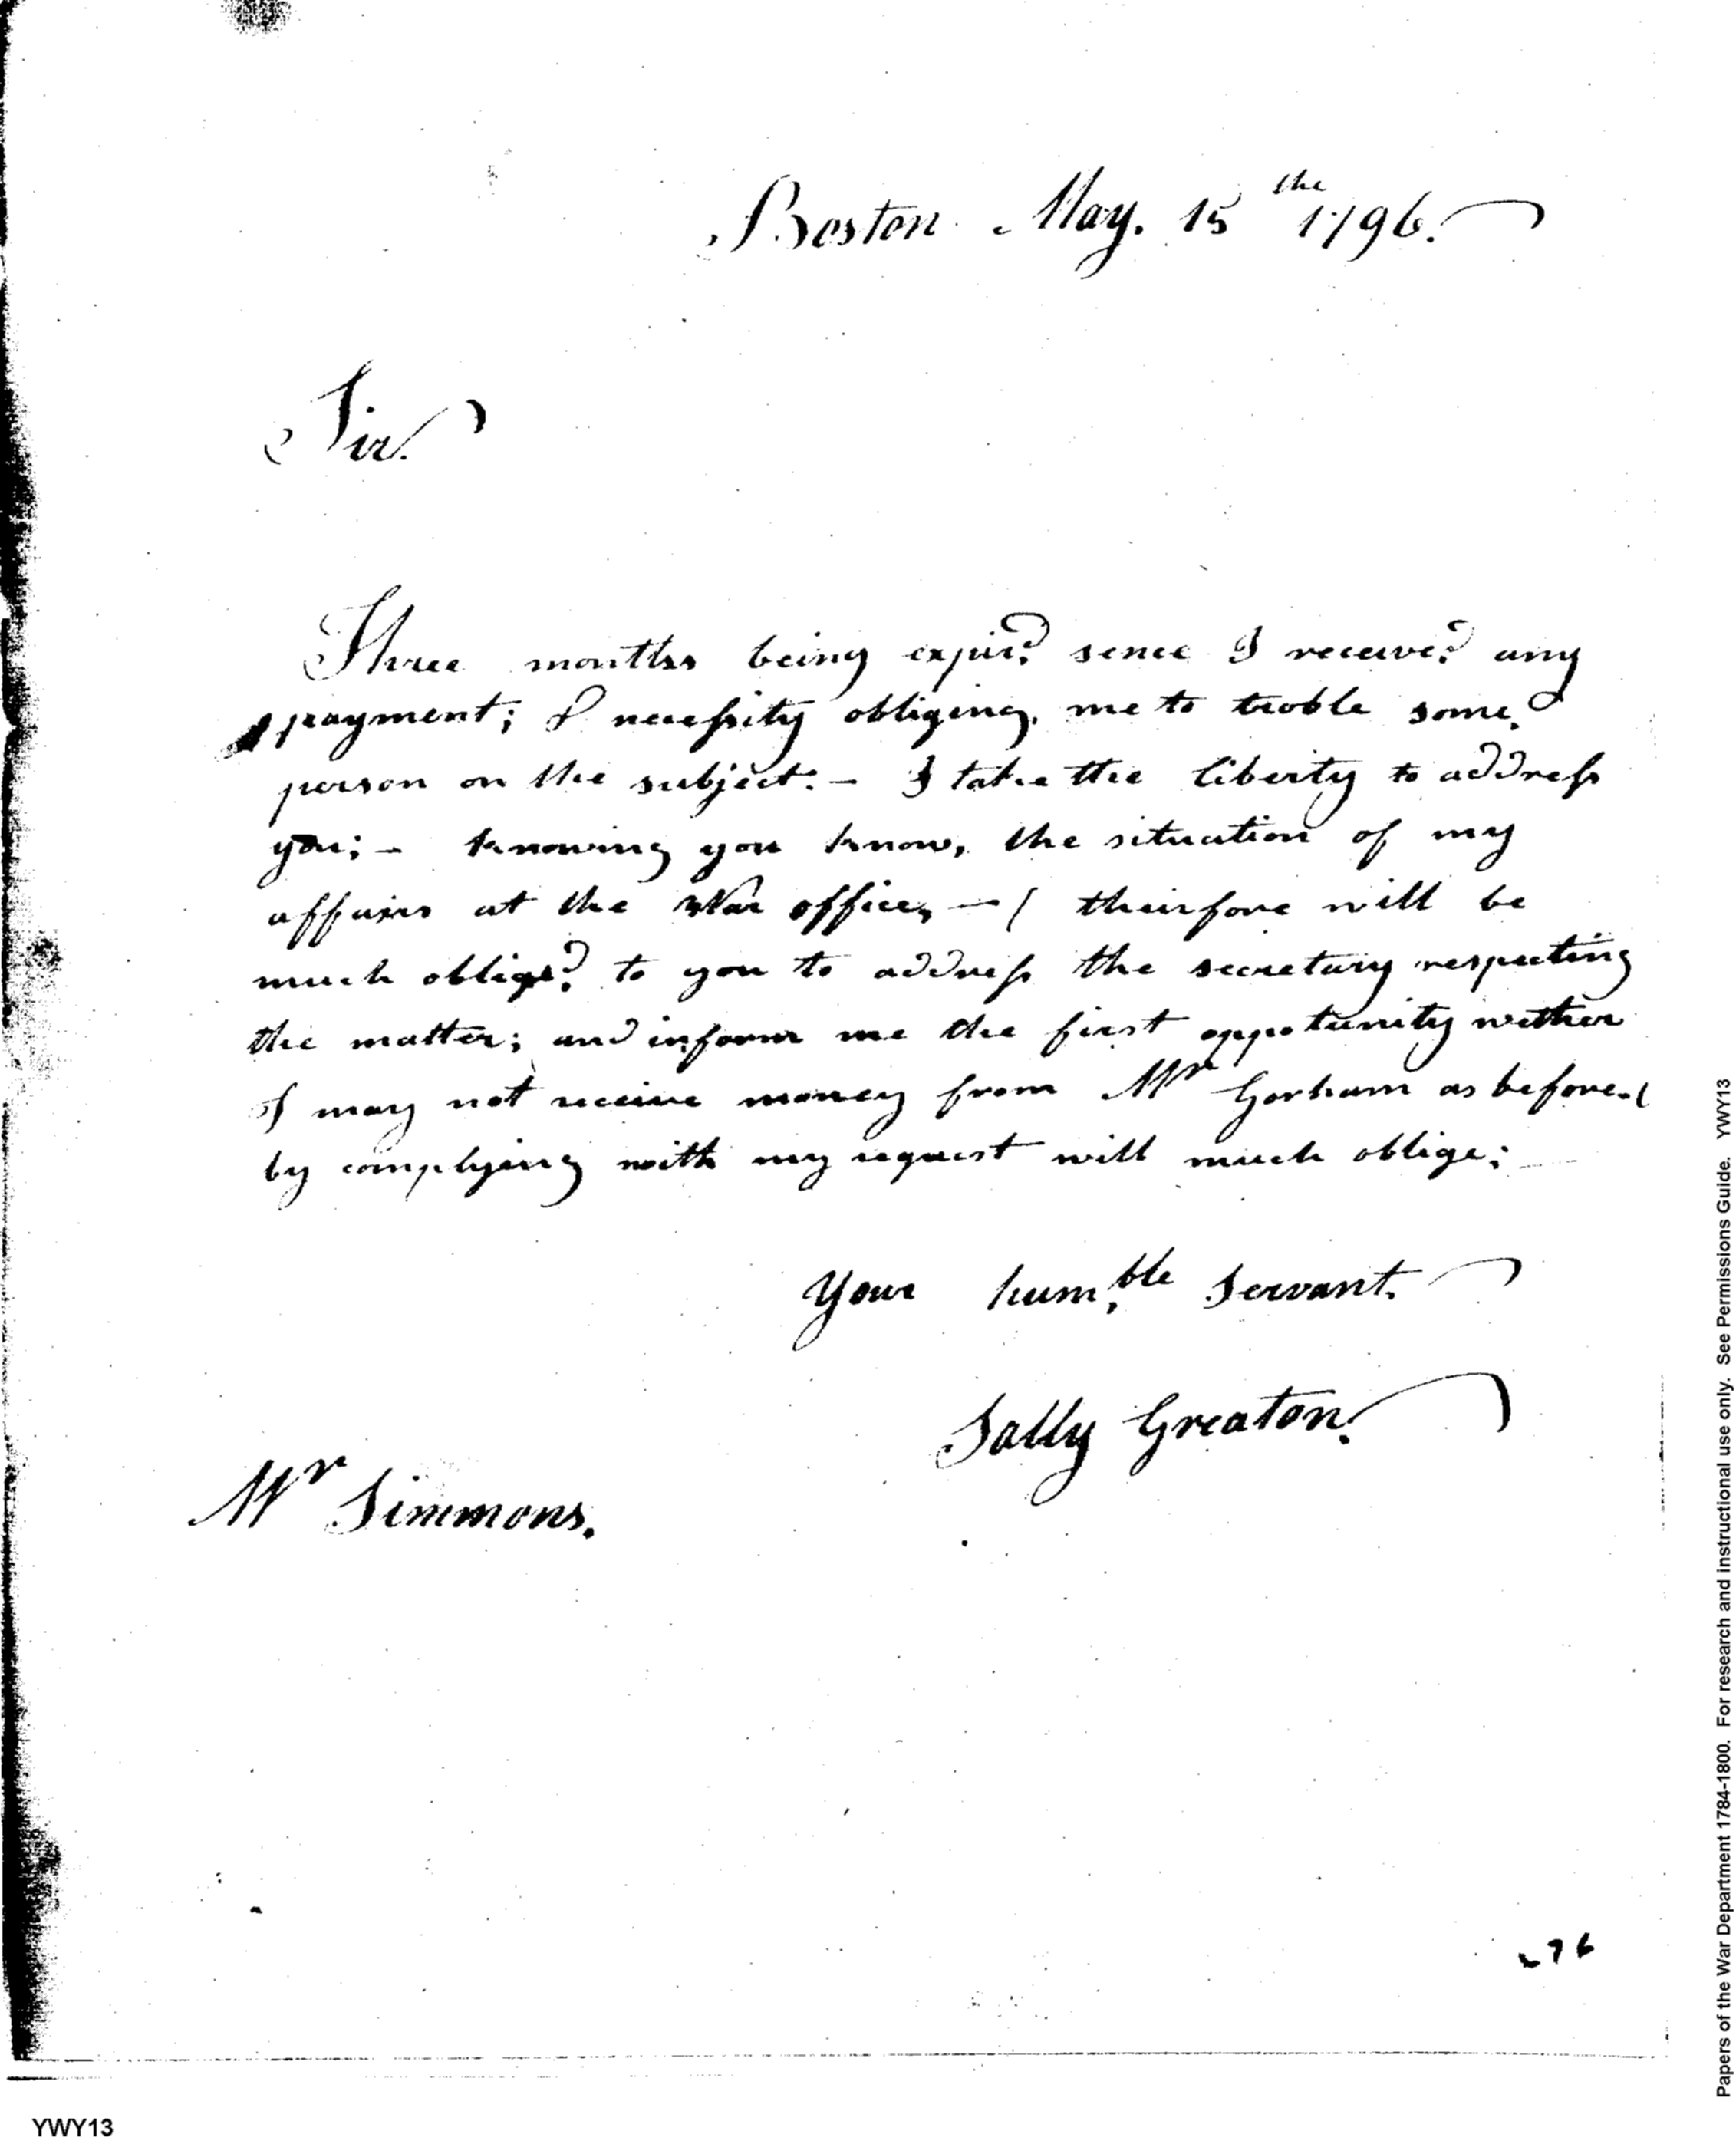 Boston May. 15 the 1796.
Sir.
Three months being expir,d sence I receive,d any
payment; & necessity obliging, me to troble some,
person on the subject. - I take the liberty to address
you; - knowing you know, the situation of my
affairs at the War office, - ( theirfore will be
much oblige,d to you to address the secretary respecting
the matter; and inform me the first oppotunity wether
I may not receive money from Mr Gorham as before. (
by complying with my request will much oblige; -
Your hum,ble Servant.
Sally Greaton.
Mr Simmons.
76
YWY13
Papers of the War Department 1784-1800. For research and instructional use only. See Permissions Guide. YWY13